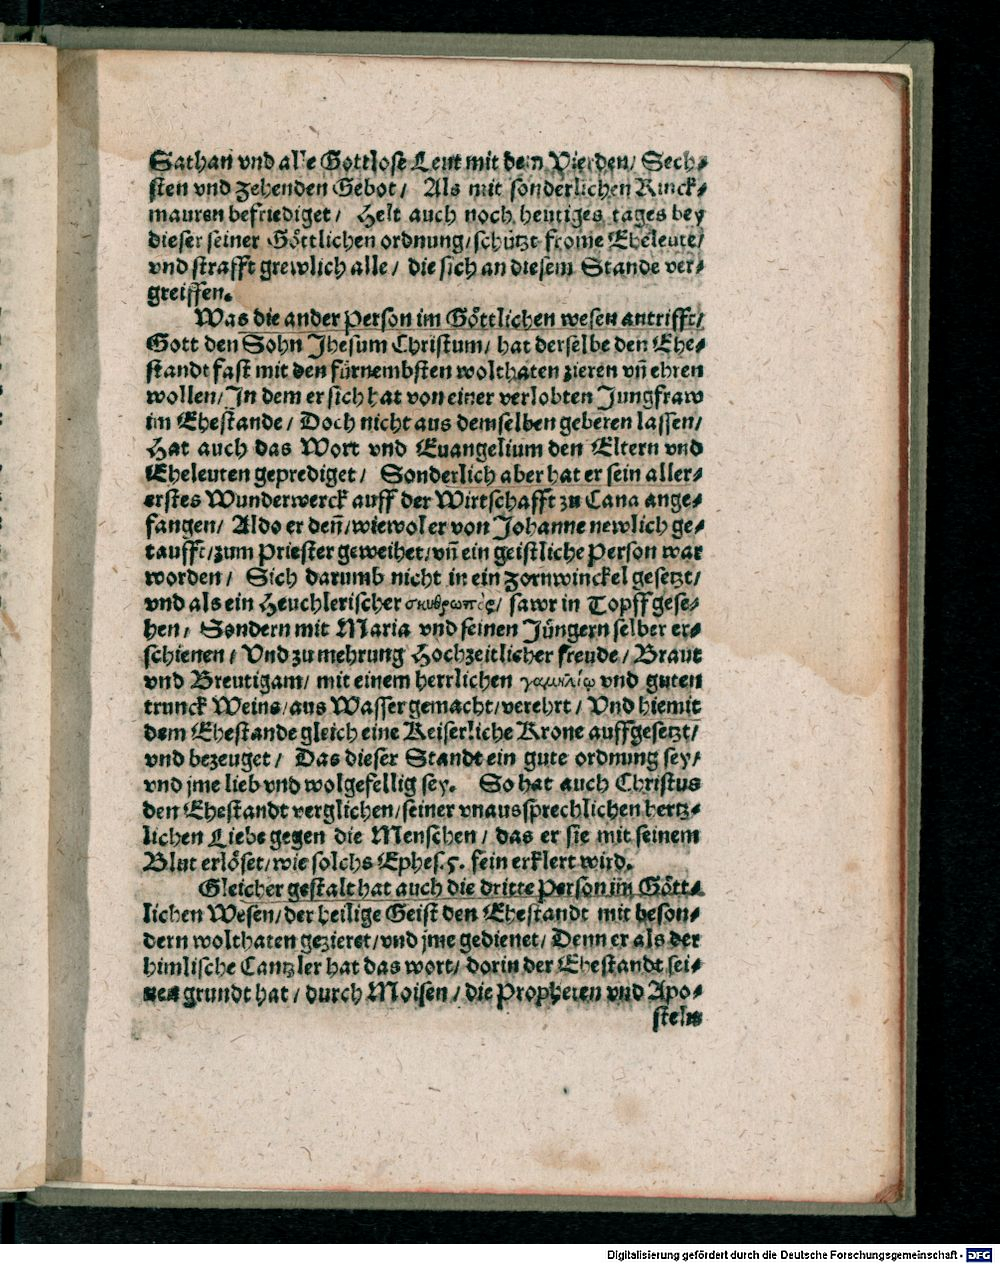 Sathan vnd alle Gottlose Leut mit dem Vierden/ Sech⸗
sten vnd zehenden Gebot/ Als mit sonderlichen Rinck⸗
mauren befriediget/ Helt auch noch heutiges tages bey
dieser seiner Göttlichen ordnung/ schützt frome Eheleute/
vnd strafft grewlich alle/ die sich an diesem Stande ver⸗
greiffen.
Was die ander Person im Göttlichen wesen antrifft/
Gott den Sohn Jhesum Christum/ hat derselbe den Ehe⸗
standt fast mit den fürnembsten wolthaten zieren vñ ehren
wollen/ In dem er sich hat von einer verlobten Jungfraw
im Ehestande/ Doch nicht aus demselben geberen lassen/
Hat auch das Wort vnd Euangelium den Eltern vnd
Eheleuten geprediget/ Sonderlich aber hat er sein aller⸗
erstes Wunderwerck auff der Wirtschafft zu Cana ange⸗
fangen/ Aldo er deñ/ wiewol er von Johanne newlich ge⸗
taufft/ zum Priester geweihet/ vñ ein geistliche Person war
worden/ Sich darumb nicht in ein zornwinckel gesetzt/
vnd als ein Heuchlerischer σκυθρωπὸς/ sawr in Topff gese⸗
hen/ Sondern mit Maria vnd seinen Jüngern selber er⸗
schienen/ Vnd zu mehrung Hochzeitlicher freude/ Braut
vnd Breutigam/ mit einem herrlichen γαμηλίῳ vnd guten
trunck Weins/ aus Wasser gemacht/ verehrt/ Vnd hiemit
dem Ehestande gleich eine Keiserliche Krone auffgesetzt/
vnd bezeuget/ Das dieser Standt ein gute ordnung sey/
vnd jme lieb vnd wolgefellig sey. So hat auch Christus
den Ehestandt verglichen/ seiner vnaussprechlichen hertz⸗
lichen Liebe gegen die Menschen/ das er sie mit seinem
Blut erlöset/ wie solchs Ephes. 5. fein erklert wird.
Gleicher gestalt hat auch die dritte Person im Gött⸗
lichen Wesen/ der heilige Geist den Ehestandt mit beson⸗
dern wolthaten gezieret/ vnd jme gedienet/ Denn er als der
himlische Cantzler hat das wort/ dorin der Ehestandt sei⸗
nen grundt hat/ durch Moisen/ die Propheten vnd Apo⸗
steln
Digitalisierung gefördert durch die Deutsche Forschungsgemeinschaft - DFG